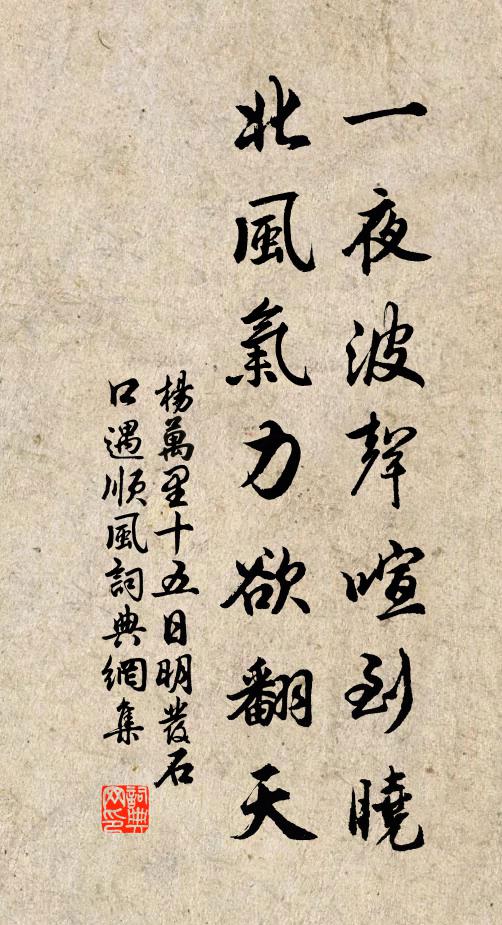 一夜波聲喧到曉
北風氣力欲翻天
楊萬里十五日明發石
口遇順風詞典網集
詞典
网印